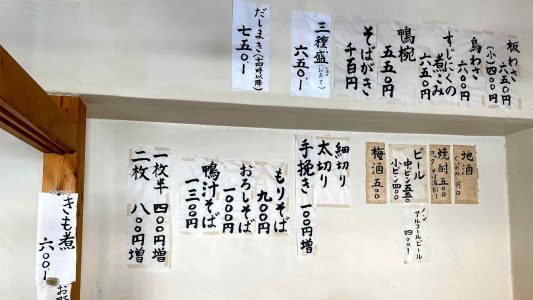 板わさ
六五〇円
(小)四〇〇円
鳥わさ
六〇〇円
すじにくの
煮こみ
六五〇円
鴨椀
五五〇円
そばがき
千百円
三種盛
六五〇-
だしまき(十四時以降)
七五〇-
地酒
焼酎五〇〇
ビール
中ビン五五〇
小ビン四〇〇
梅酒五〇〇
ノン
アルコールビール
四〇〇-
細切り
太切り
手挽き一〇〇円増
もりそば
九〇〇円
おろしそば
一〇〇〇円
鴨汁そば
一三〇〇円
一枚半 四〇〇円増
二枚 八〇〇円増
きも煮
六〇〇-